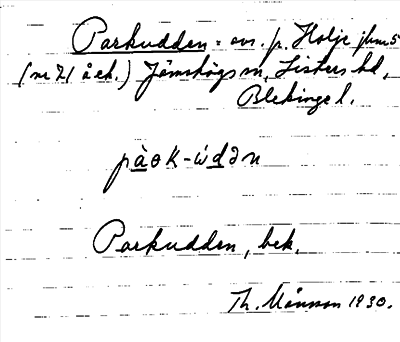 Parkudden = avs. p. Holje hmn 5
(nr 71 å ek.) Jämshögs sn, Listers hd,
Blekinge l.
pàɵK-ẃdən
Parkudden, bek.
Th. Månsson 1930.